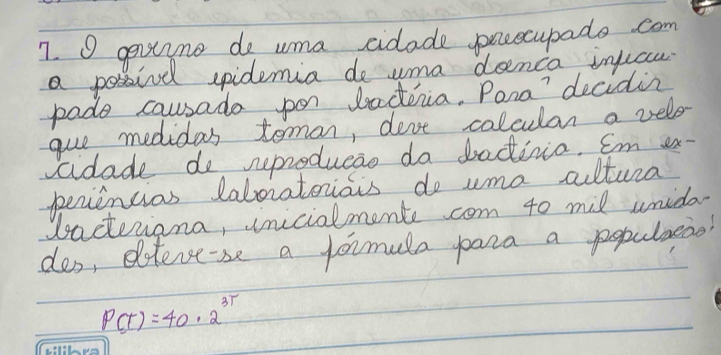 7. O governo de uma cidade preocupado com
a possível epidemia de uma doença infeccu-
pado causado por bactéria. Para decidir
que medidas tomar, deve calcular a velo-
cidade de reprodução da bactéria. Em ex-
periências laboratoriais de uma cultura
bacteriana, inicialmente com 40 mil unida-
des, obteve-se a fórmula para a população:
P(T) = 40 . 2^{3T}
tilibra